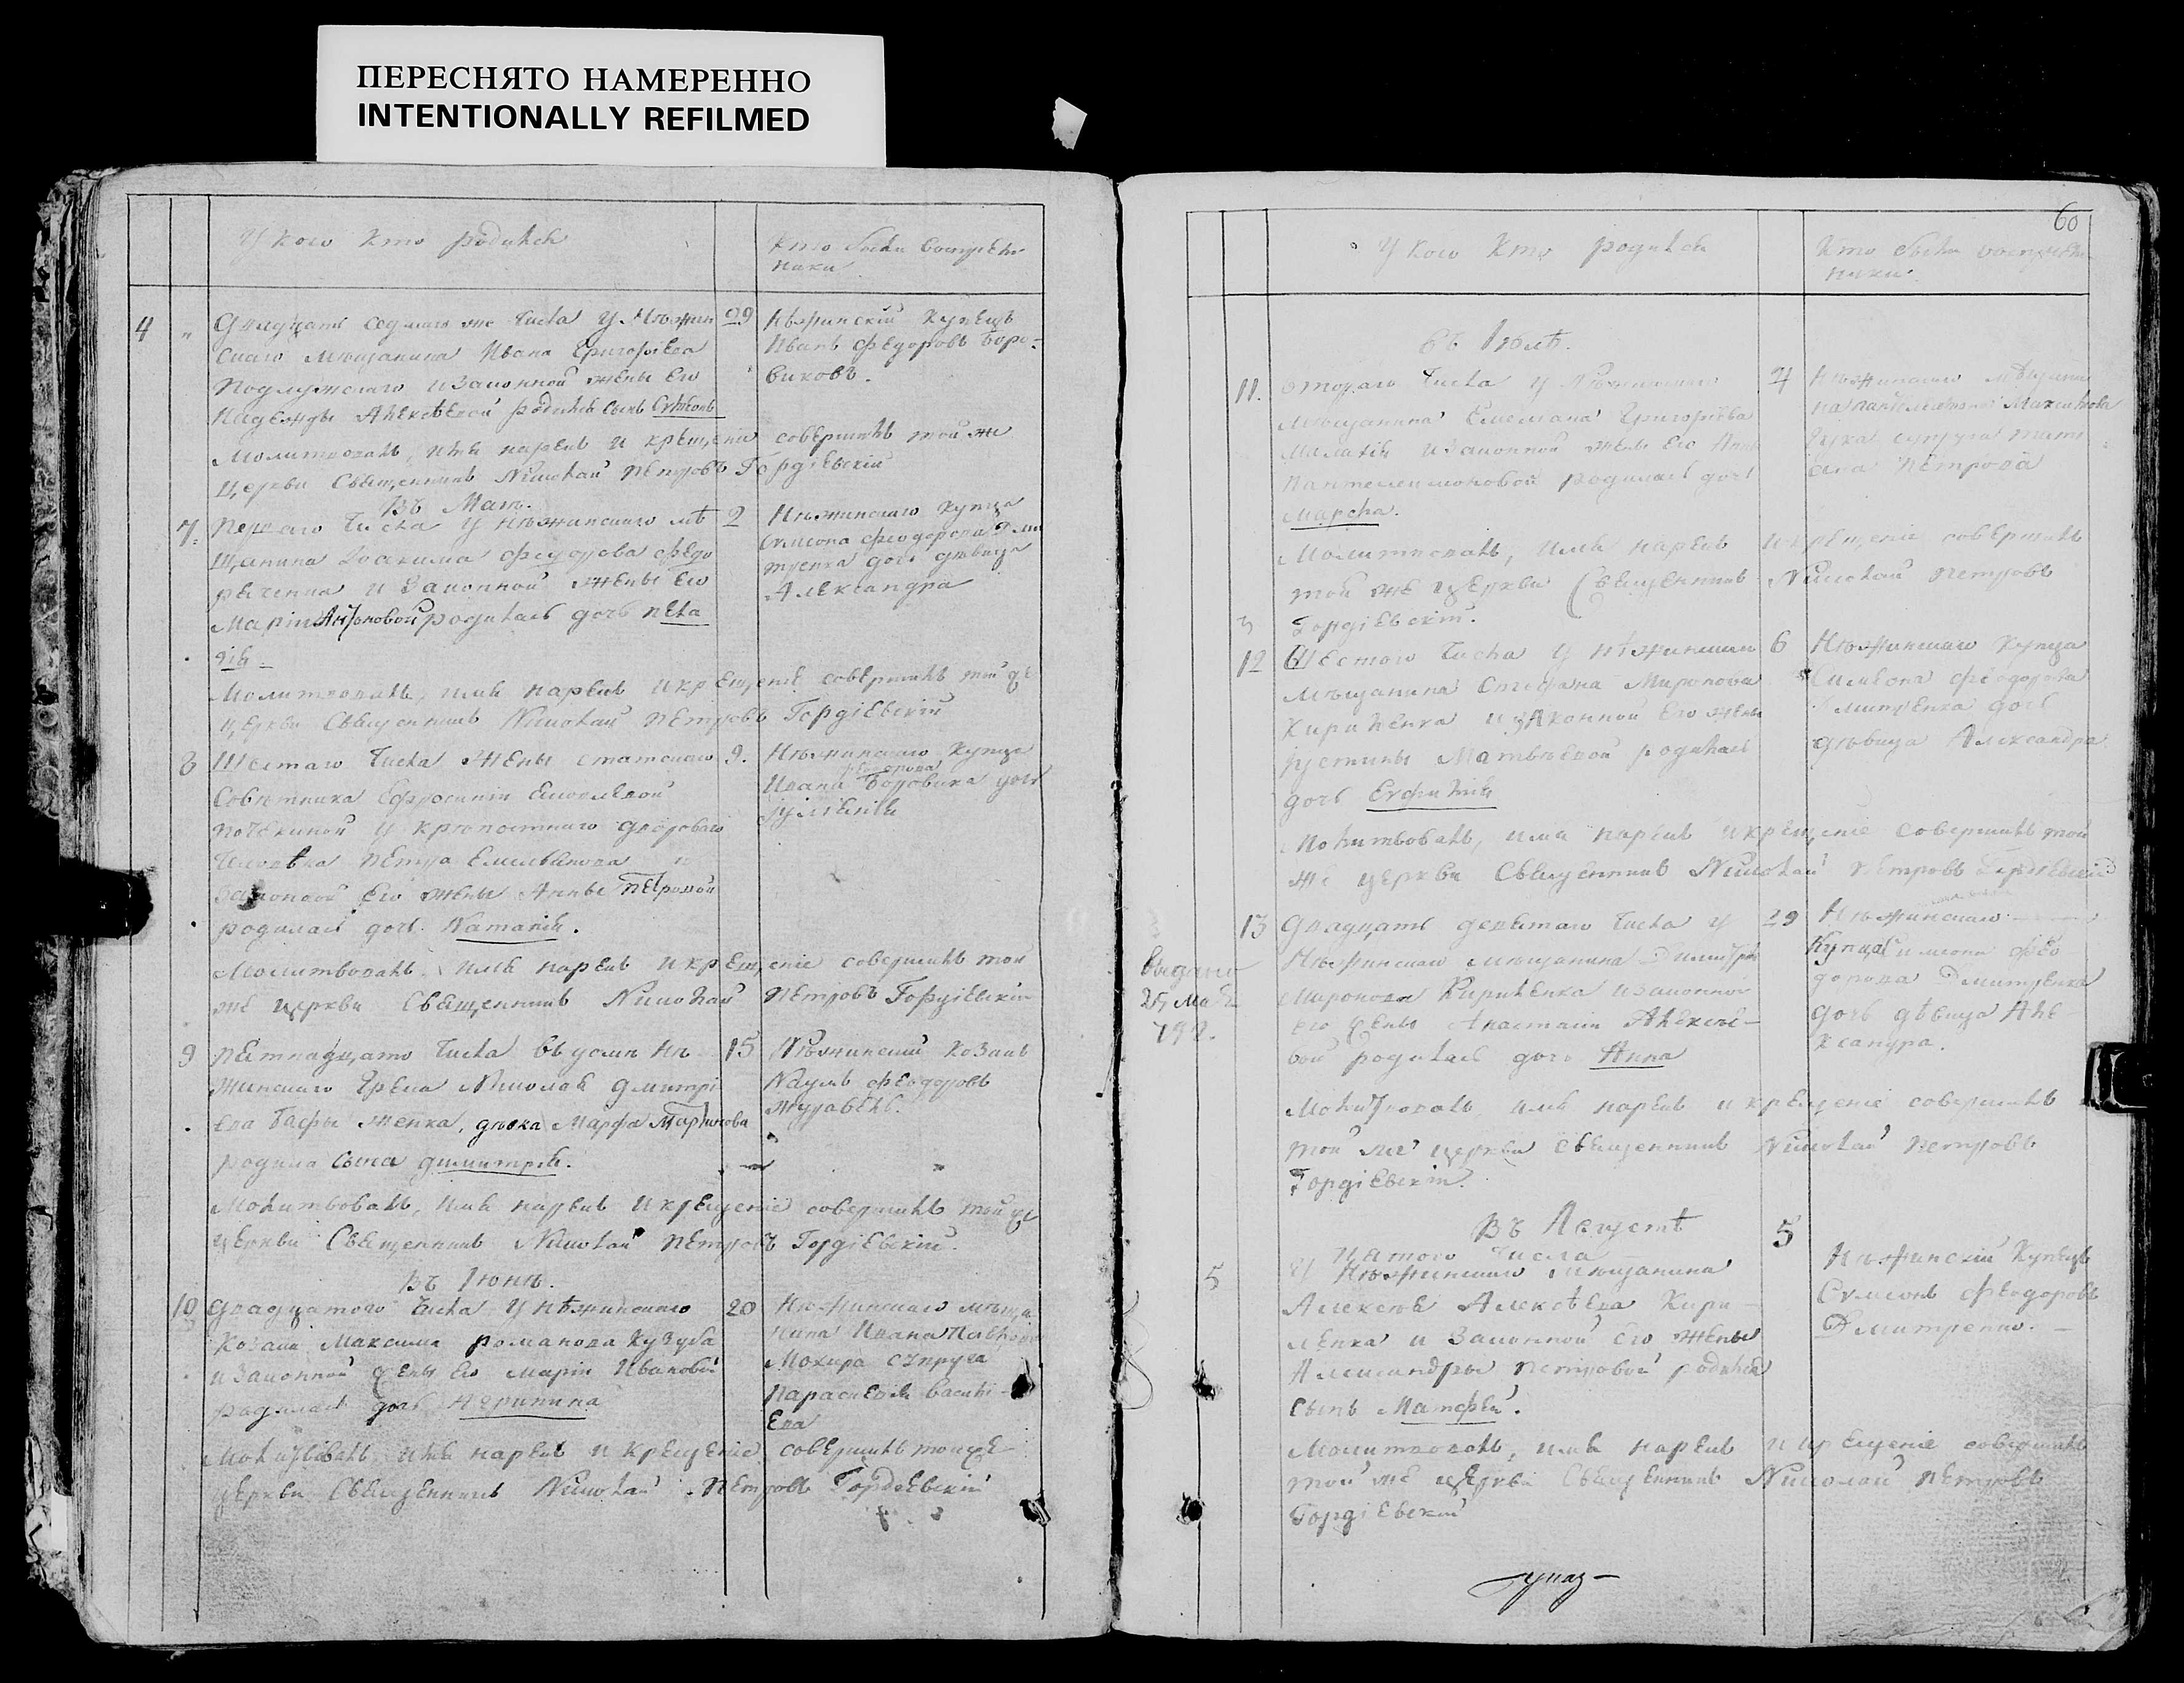 ПЕРЕСНЯТО НАМЕРЕННО
INTENTIONALLY REFILMED
У кого кто родился
Кто были воспріем
ники
4 " Двадцать седмаго же числа у Нѣжин 29
скаго мѣщанина Ивана Григоріева
Подлужнаго и законной жены его
Надежды Алексѣевой родился сынъ Сѵмеонъ
Нѣжинскій купецъ
Иванъ Федоровъ Боро-
виковъ.
Молитвовалъ, имя нареклъ и крещеніе совершилъ той же
церкви Священникъ Николай Петровъ Гордіевскій
Въ Маѣ.
7. Перваго числа у нѣжинскаго мѣ 2
щанина Іоакима Федорова Федо
рченка и законной жены его
Маріи Антоновой родилась дочь Пела
гія
Нѣжинскаго купца
Сѵмеона Феодорова Дми
тренка дочь дѣвица
Александра
Молитвовалъ, имя нареклъ и крещеніе совершилъ той же
церкви Священникъ Николай Петровъ Гордіевскій
8 Шестаго числа жены статскаго 9.
Совѣтника Ефросиніи
у крѣпостнаго двороваго
человѣка Петра Емельянова и
законной его жены Анны Петровой
родилась дочь Наталія.
Нѣжинскаго купца
Ивана Федорова Боровика дочь
Іуліанія
Молитвовалъ имя нареклъ и крещеніе совершилъ той
же церкви Священникъ Николай Петровъ Гордіевскій
9 Пятнадцато числа въ домѣ нѣ 15
жинскаго Грека Николая Дмитрі
ева женка, дѣвка Марфа Мартинова
родила сына Димитрія.
Нѣжинскій козакъ
Наумъ Феодоровъ
Журавель.
Молитвовалъ, имя нареклъ и крещеніе совершилъ той же
церкви Священникъ Николай Петровъ Гордіевскій.
Въ Іюнѣ.
10 Двадцатого числа у нѣжинскаго 20
козака Максима Романова Кузуба
и законной жены его Маріи Ивановой
родилась дочь Агрипина
Нѣжинскаго мѣща
нина Ивана Павлова
Мохира супруга
Параскевія Василі-
ева
Молитвовалъ имя нареклъ и крещеніе совершилъ той же
церкви Священникъ Николай Петровъ Гордѣевскій
60
У кого кто родился
Кто были воспріем
ники.
Въ Іюлѣ.
11. Втораго числа у Нѣжинскаго 4
мѣщанина Емельяна Григоріева
и законной жены его Анны
Пантелеимоновой родилась дочь
Марфа.
Нѣжинскаго мѣщани
на Пантелеимона Максимова
супруга
Петрова
Молитвовалъ, имя нареклъ и крещеніе совершилъ
той же церкви Священникъ Николай Петровъ
Гордіевскій.
12 Шестого числа у нѣжинскаго 6
мѣщанина Стефана Миронова
Кириленка и законной его жены
Іустины Матвѣевой родилась
дочь Евфимія
Нѣжинскаго купца
Симеона Феодорова
Дмитренка дочь
дѣвица Александра
Молитвовалъ, имя нареклъ и крещеніе совершилъ той
же церкви Священникъ Николай Петровъ Гордіевскій
13 Двадцать девятаго числа у 29
Нѣжинскаго мѣщанина Димитрія
Миронова Кириленка и законной
его жены Анастасіи Алексѣе-
вой родилась дочь Анна
Нѣжинскаго
купца Симеона Фео
дорова Дмитренка
дочь дѣвица Але
ксандра.
Выдано
25 Мая
Молитвовалъ имя нареклъ и крещеніе совершилъ
той же церкви Священникъ Николай Петровъ
Гордіевскій.
Въ Августѣ
Пятого числа 5
5 У Нѣжинскаго мѣщанина
Алексѣя Алексѣева Кири-
ленка и законной его жены
Александры Петровой родился
сынъ Матфей.
Нѣжинскій Купецъ
Сѵмеонъ Феодоровъ
Дмитренко.
Молитвовалъ, имя нареклъ и крещеніе совершилъ
той же церкви Священникъ Николай Петровъ
Гордіевскій